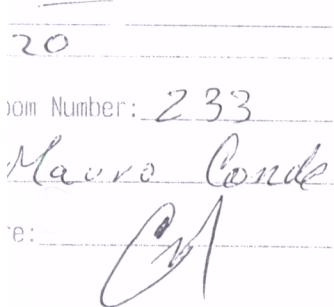 20
oom Number: 233
Mauro Conde
e: